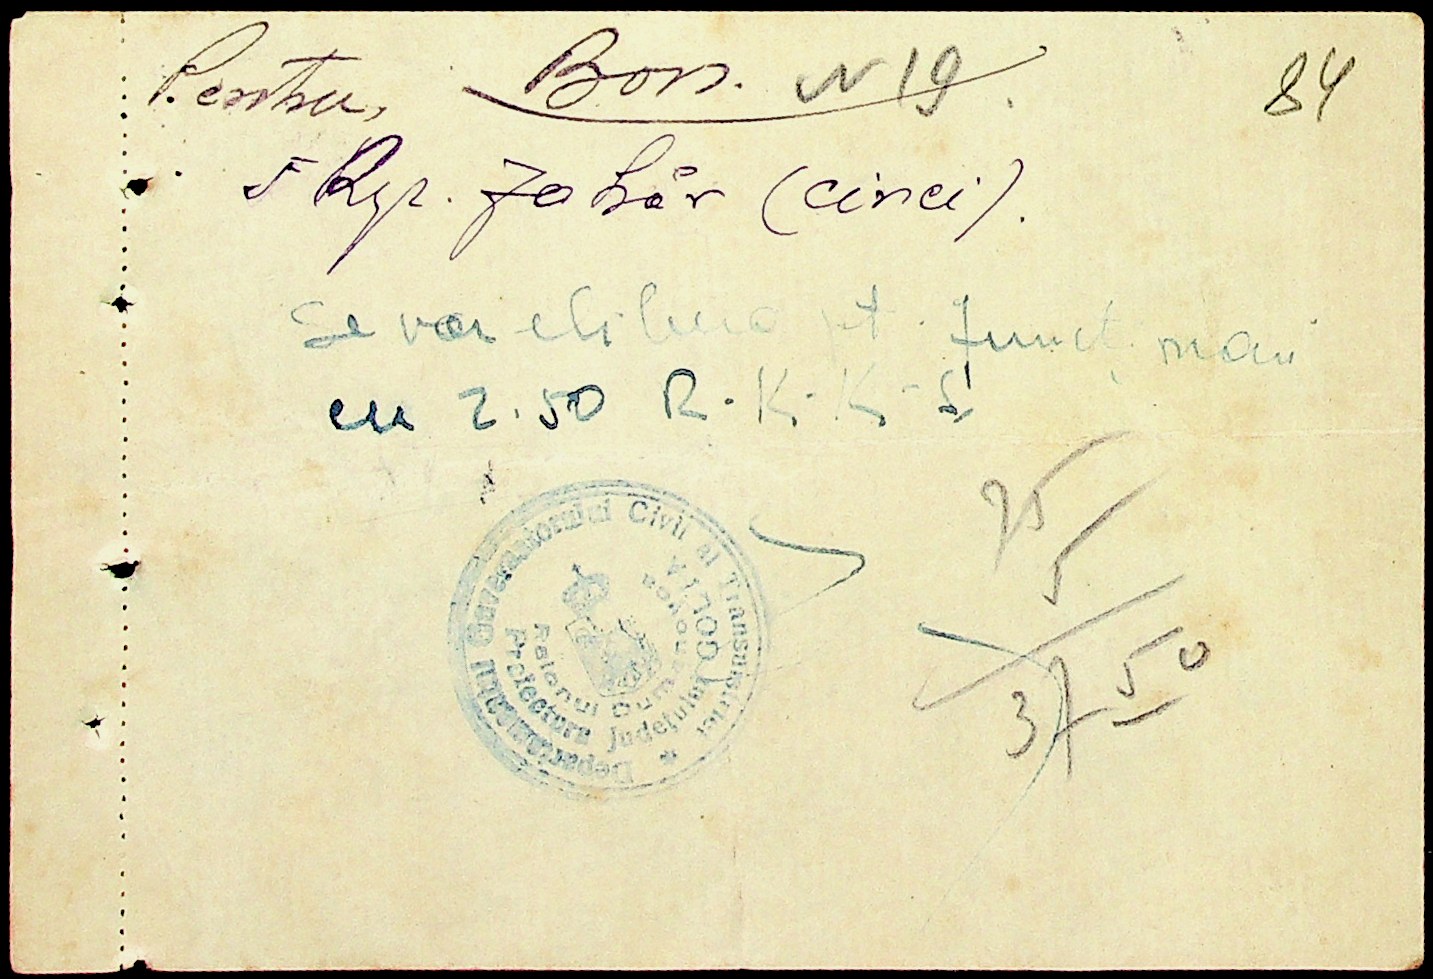 Pentru, Bon. N 19. 84
5 Kgr. Zahăr (cinci).
Se va elibera pt. funcționari
cu 2.50 R.K.K.S
75
5
37 50
Departamentul Guvernatorului Civil al Transnistriei *
Prefectura Județului GOLTA
Raionul Dumanovca